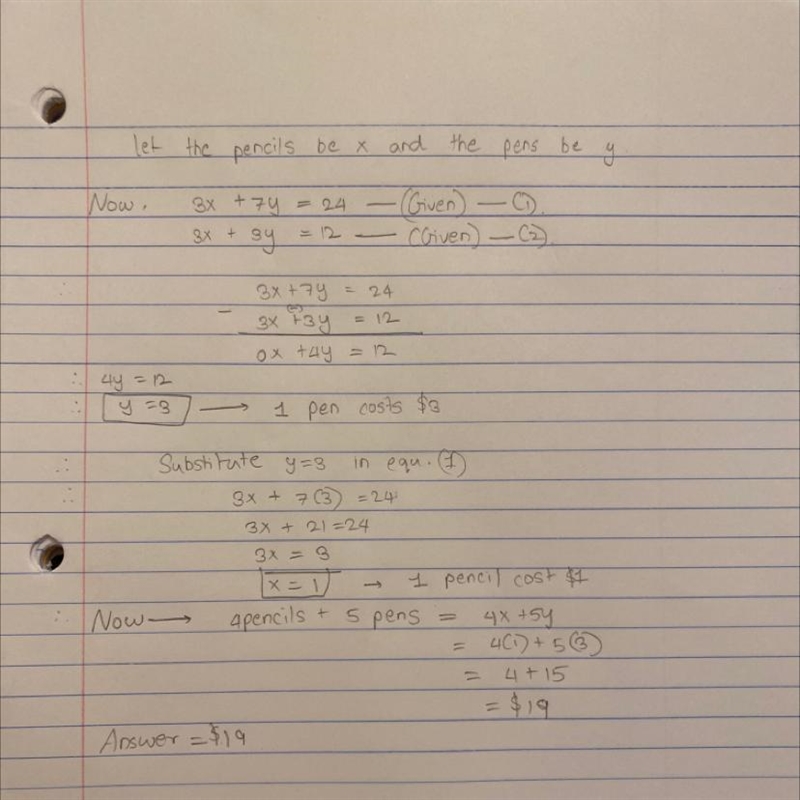 let the pencils be x and the pens be y
Now. 3x + 7y = 24 — (Given) — (1).
3x + 3y = 12 — (Given) — (2).
∴ 3x + 7y = 24
- 3x (-)+3y = 12
0x + 4y = 12
∴ 4y = 12
∴ y = 3 → 1 pen costs $3
∴ Substitute y=3 in equ. (1)
∴ 3x + 7(3) = 24
3x + 21 = 24
3x = 3
x = 1 → 1 pencil cost $1
∴ Now → 4pencils + 5 pens = 4x+5y
= 4(1) + 5(3)
= 4 + 15
= $19
Answer = $19